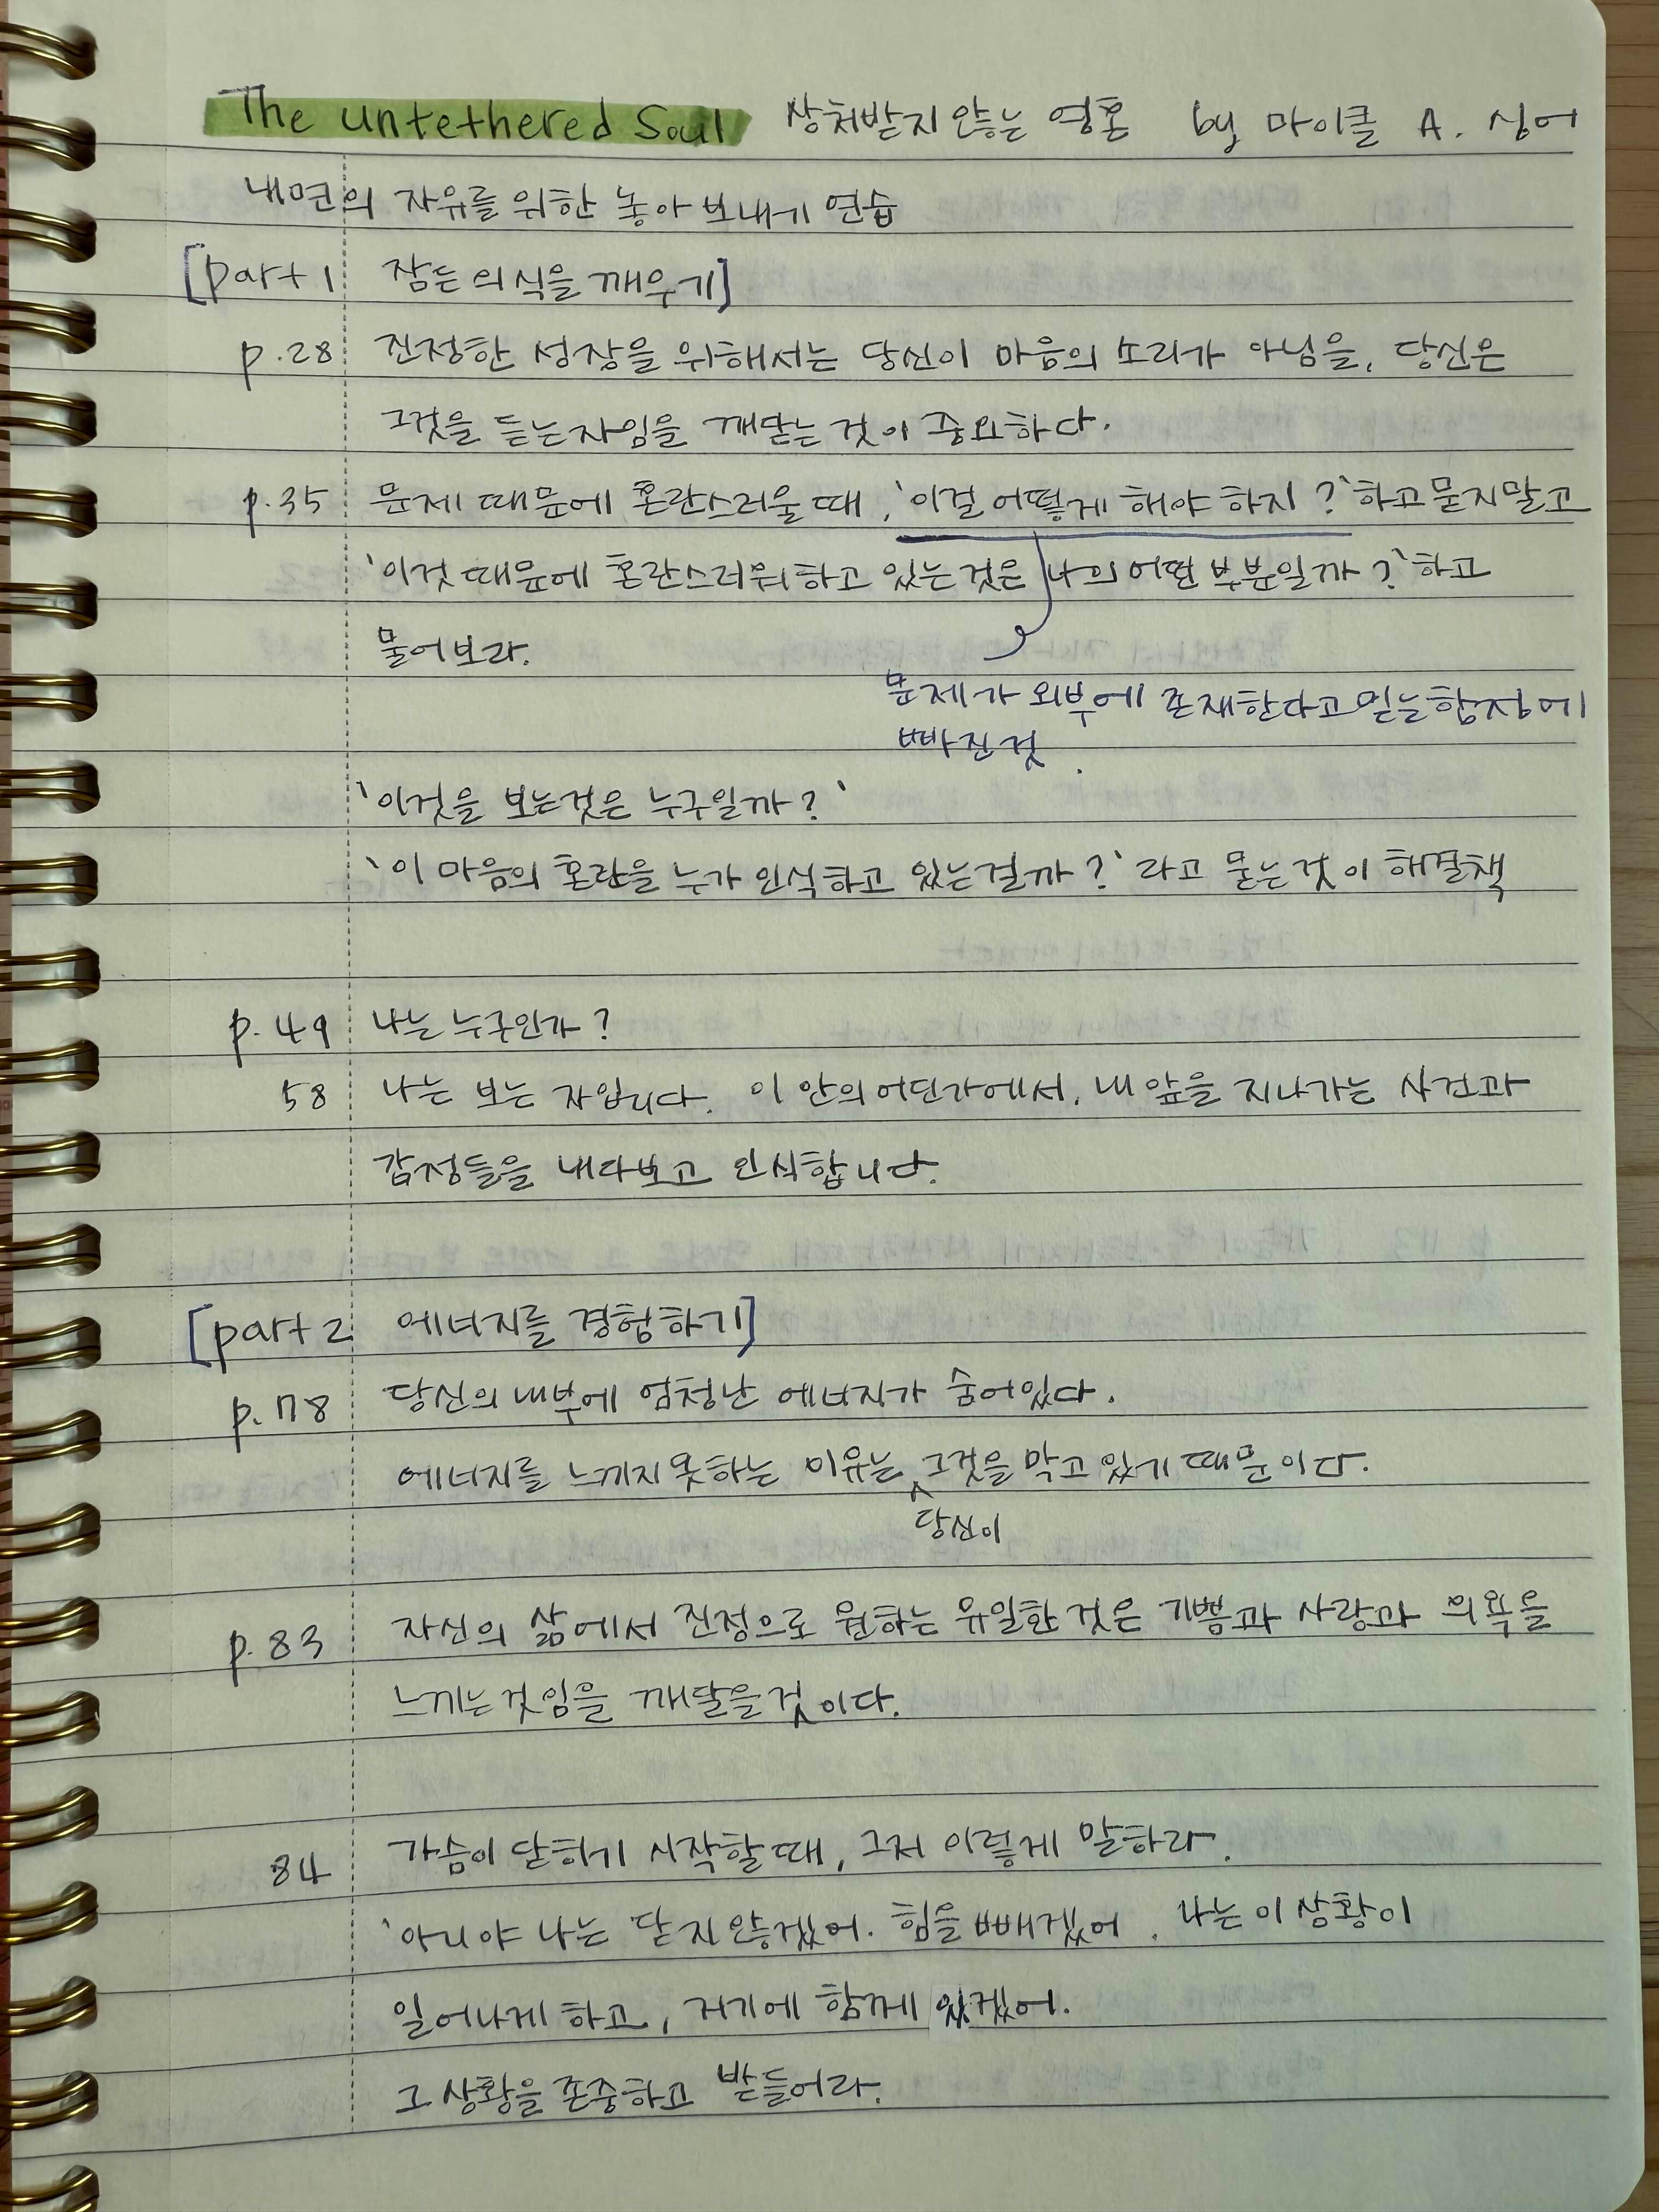 The untethered Soul 상처받지 않는 영혼 by 마이클 A. 싱어
내면의 자유를 위한 놓아 보내기 연습
[part 1 잠든 의식을 깨우기]
p.28 진정한 성장을 위해서는 당신이 마음의 소리가 아님을, 당신은
그것을 듣는자임을 깨닫는 것이 중요하다.
p.35 문제 때문에 혼란스러울 때, '이걸 어떻게 해야 하지?' 하고 묻지말고
'이것 때문에 혼란스러워하고 있는 것은 나의 어떤 부분일까?' 하고
물어보라.
문제가 외부에 존재한다고 믿는 함정에
빠진 것.
'이것을 보는것은 누구일까?'
'이 마음의 혼란을 누가 인식하고 있는걸까?' 라고 묻는 것이 해결책
p. 49 나는 누구인가?
58 나는 보는 자입니다. 이 안의 어딘가에서, 내 앞을 지나가는 사건과
감정들을 내다보고 인식합니다.
[part 2 에너지를 경험하기]
p. 78 당신의 내부에 엄청난 에너지가 숨어있다.
에너지를 느끼지 못하는 이유는 그것을 막고 있기 때문이다.
당신이
p. 83 자신의 삶에서 진정으로 원하는 유일한 것은 기쁨과 사랑과 의욕을
느끼는것임을 깨달을것이다.
84 가슴이 닫히기 시작할 때, 그저 이렇게 말하라.
'아니야 나는 닫지 않겠어. 힘을 빼겠어. 나는 이 상황이
일어나게 하고, 거기에 함께 있겠어.
그 상황을 존중하고 받들어라.